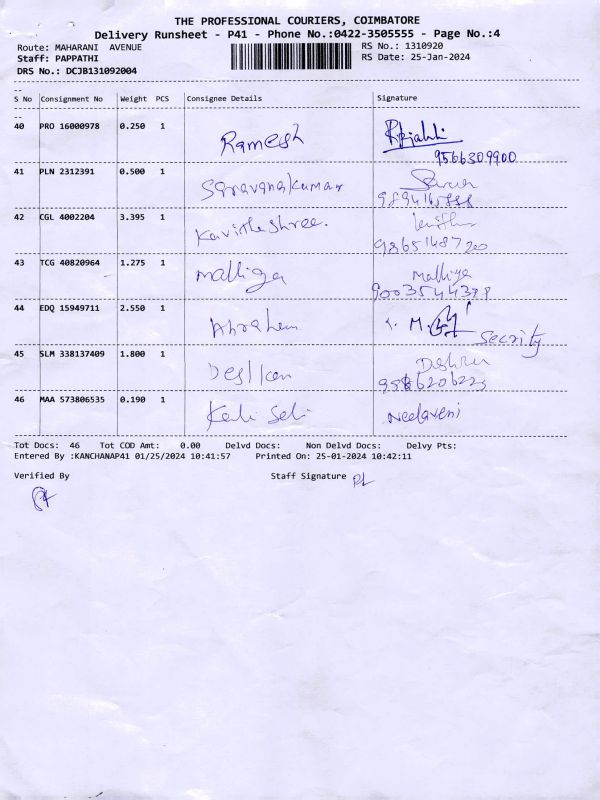 THE PROFESSIONAL COURIERS, COIMBATORE
Delivery Runsheet - P41 - Phone No.:0422-3505555 - Page No.:4
Route: MAHARANI AVENUE RS No.: 1310920
Staff: PAPPATHI RS Date: 25-Jan-2024
DRS No.: DCJB131092004
S No Consignment No Weight PCS Consignee Details Signature
40 PRO 16000978 0.250 1 Ramesh
9566309900
41 PLN 2312391 0.500 1 Saravanakumar
42 CGL 4002204 3.395 1 Kavitha shree.
43 TCG 40820964 1.275 1 Malliga Malliga
44 EDQ 15949711 2.550 1 Abraham
Secrity
45 SLM 338137409 1.800 1
46 MAA 573806535 0.190 1 Neelaveni
Tot Docs: 46 Tot COD Amt: 0.00 Delvd Docs: Non Delvd Docs: Delvy Pts:
Entered By :KANCHANAP41 01/25/2024 10:41:57 Printed On: 25-01-2024 10:42:11
Verified By Staff Signature